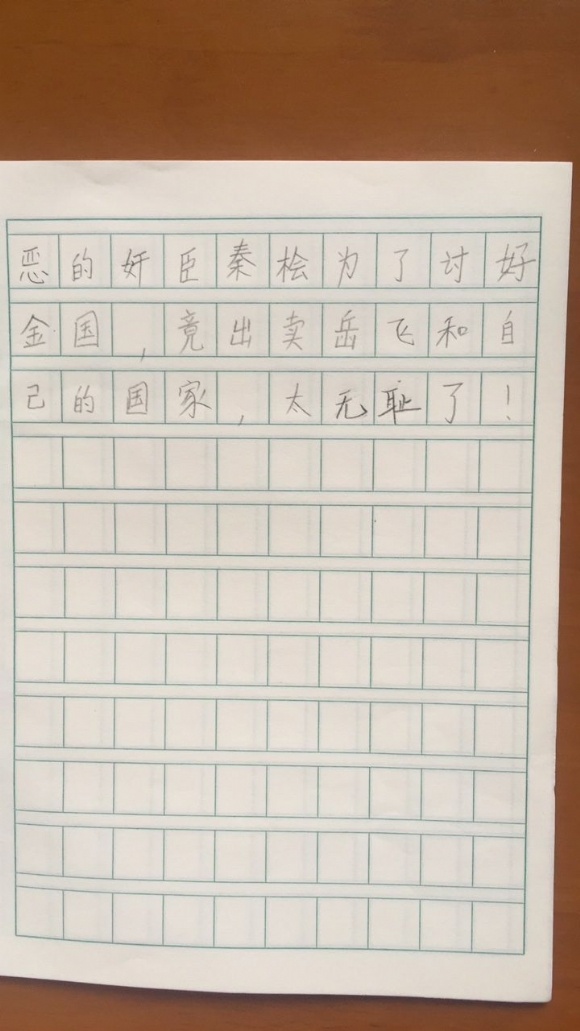 恶的奸臣秦桧为了讨好
金国，竟出卖岳飞和自
己的国家，太无耻了！